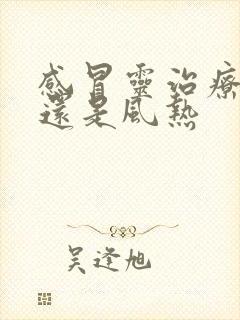 感冒靈治療
還是風熱
吳逢旭